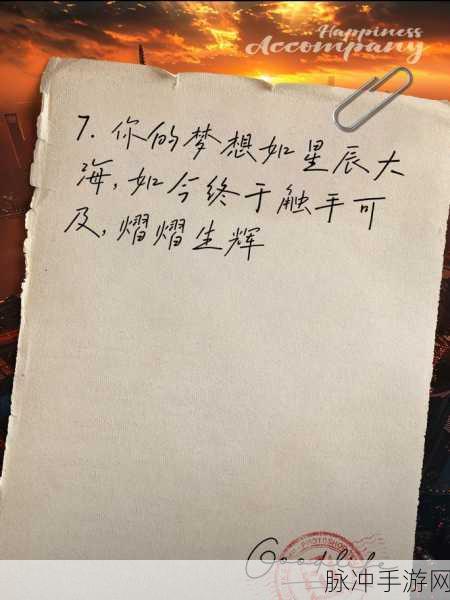 Happiness
Accompany
7. 你的梦想如星辰大
海,如今终于触手可
及,熠熠生辉
PHOTOSHOP
Goodslife
脉冲手游网